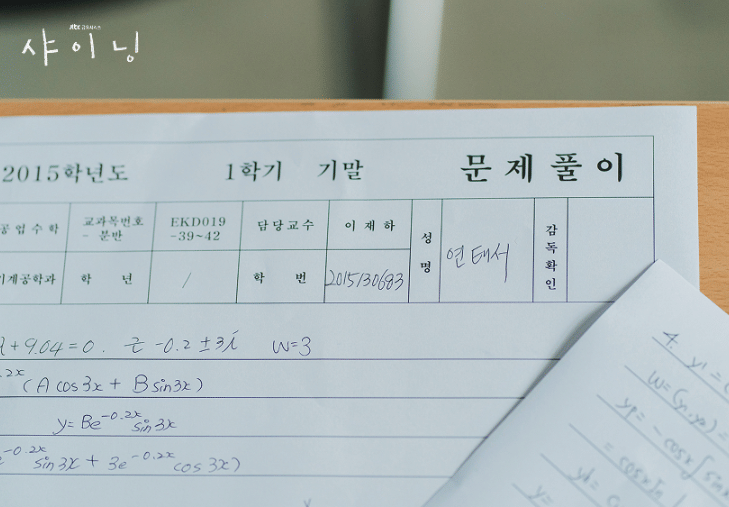 jtbc 금요시리즈
샤이닝
2015학년도 1학기 기말 문제풀이
공업수학 교과목번호 - 분반 EKD019 -39~42 담당교수 이재하 성명 연태서 감독확인
기계공학과 학 년 / 학 번 2015130683
+ 9.04 = 0. -0.2 ± 3i w=3
(A cos3x + B sin3x)
y = Be^-0.2x sin3x
-0.2x sin3x + 3e^-0.2x cos3x)
4. y1 =
w = (y1, y2) =
yp = -cosx ∫ sin
= cosx
y =